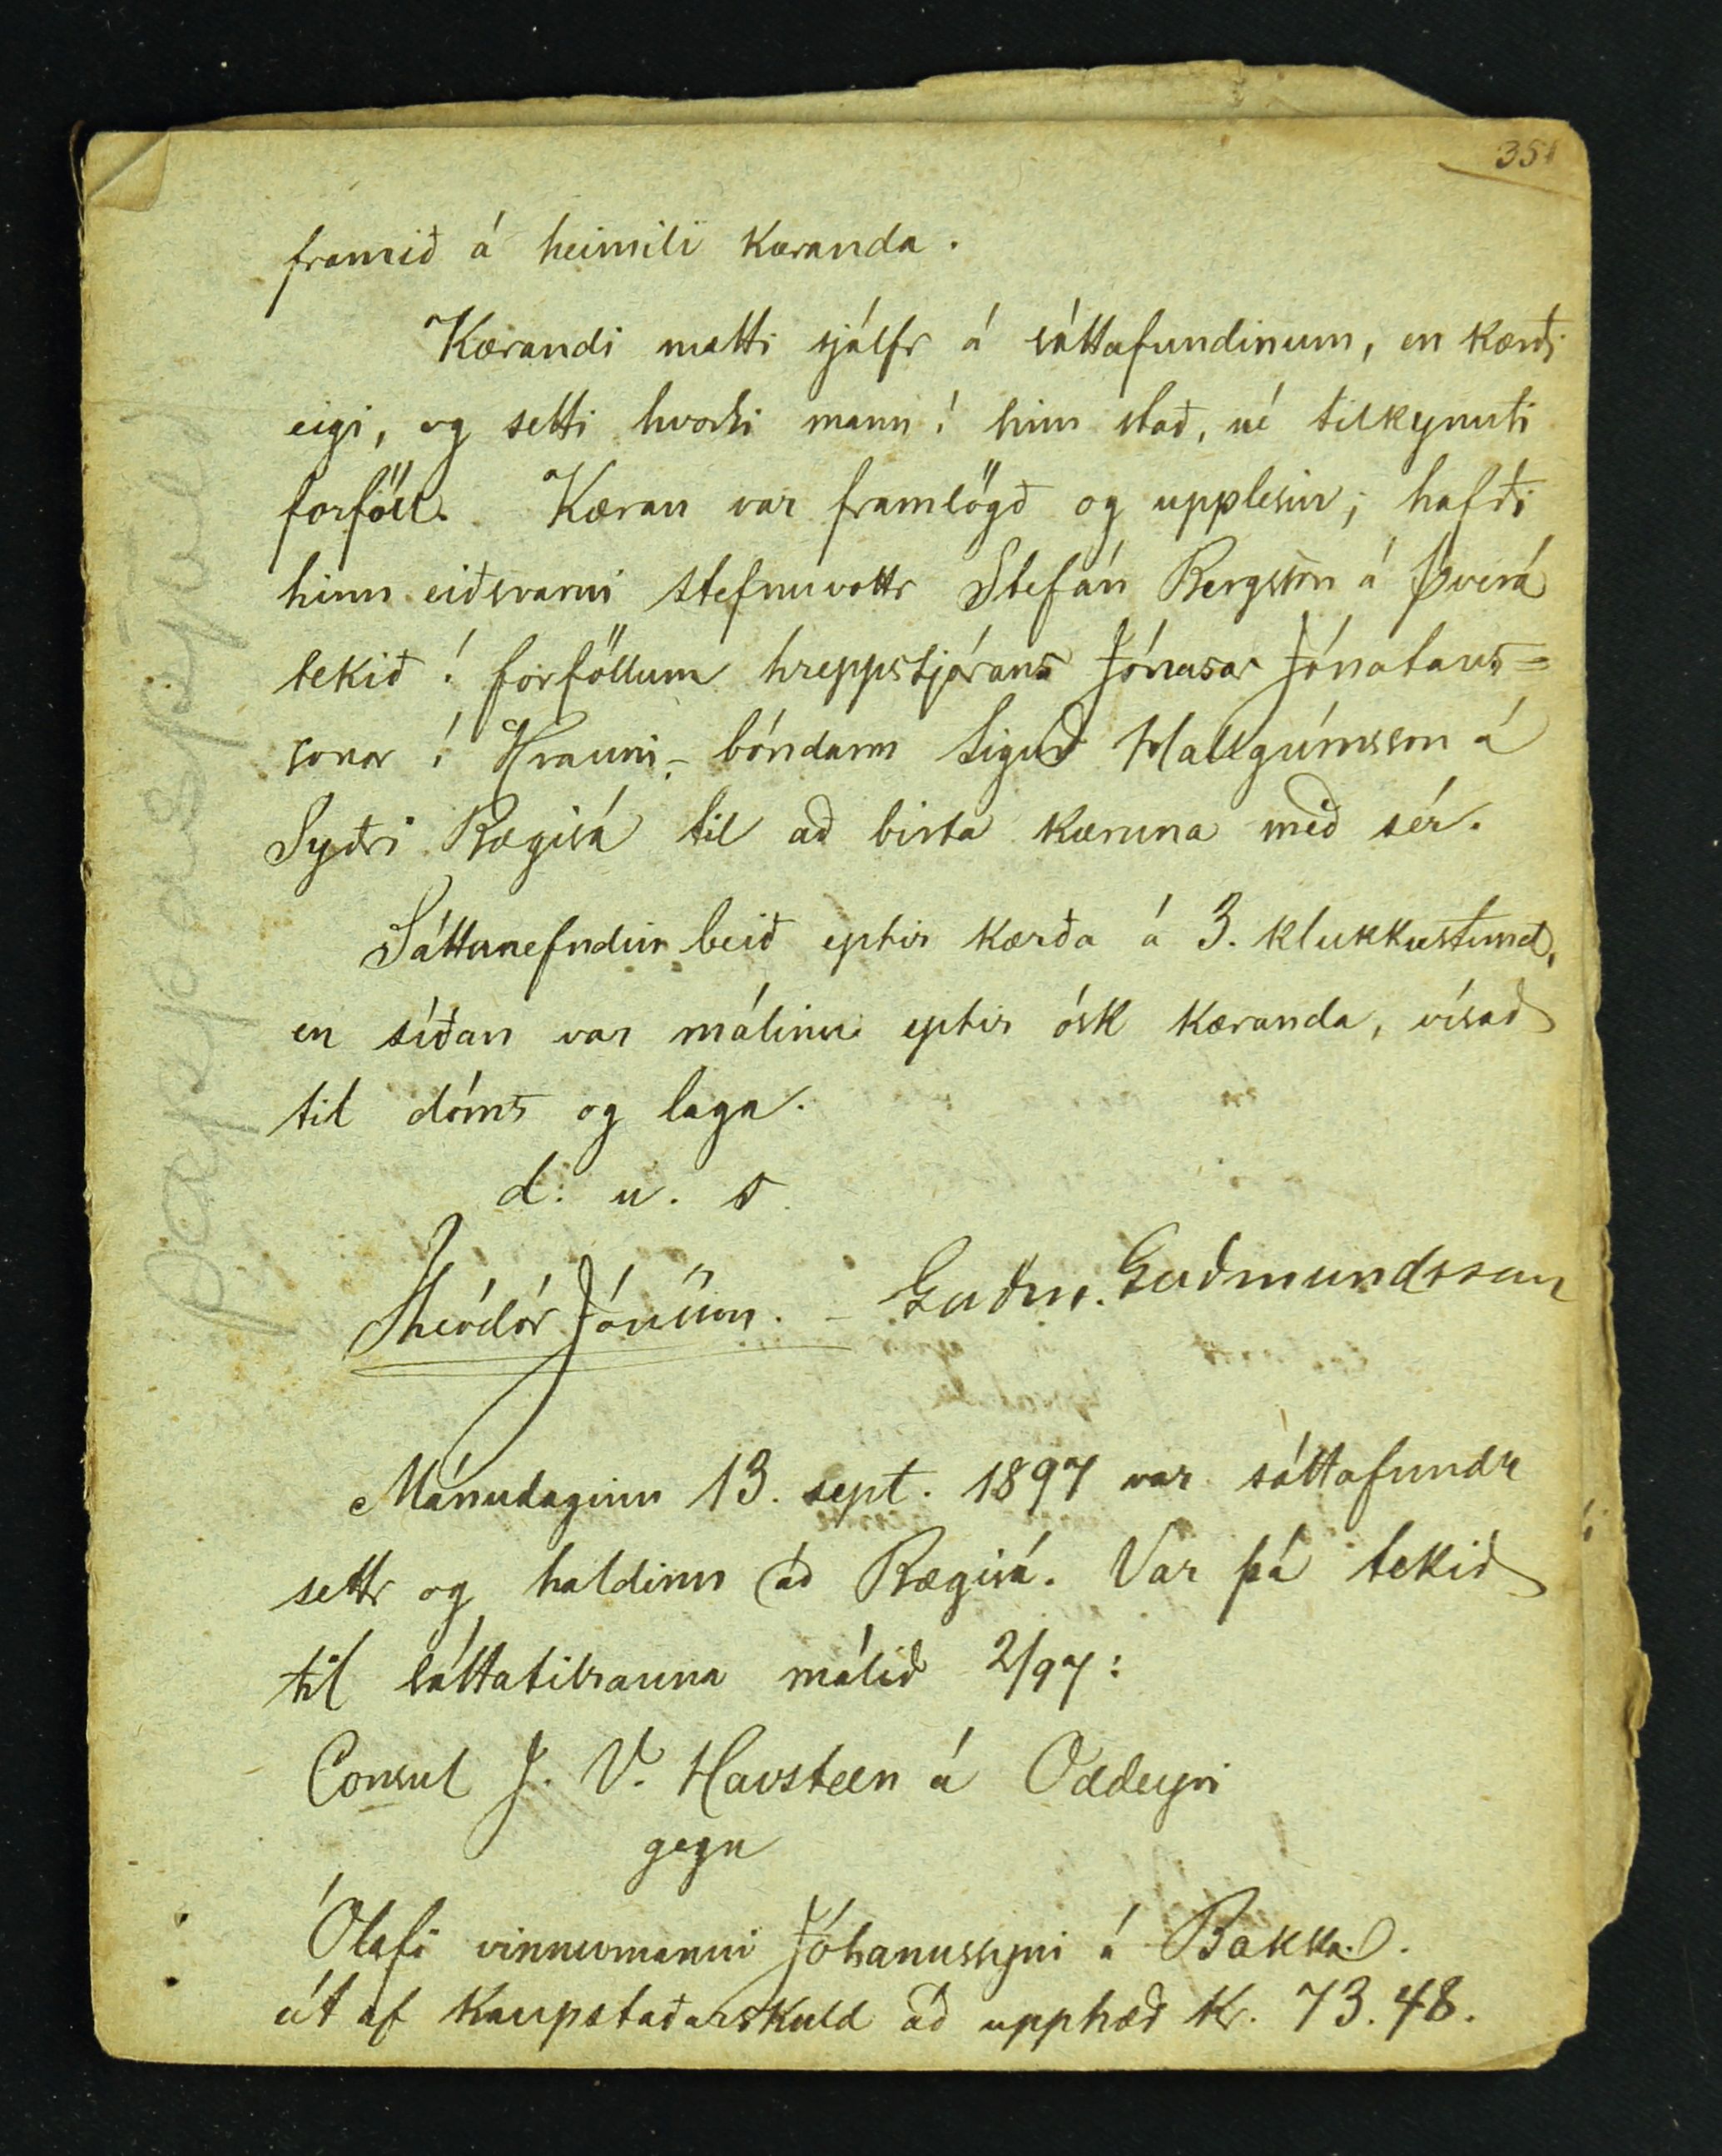 351
framið á heimili kæranda.
Kærandi mætti sjálfr á sáttafundinum, en kærði
eigi, og setti hvorki mann í hinn stað, né tilkynnti
forföll. Kæran var framlögð og upplesin; hafði
hinn eiðsvarni stefnuvottr Stefán Bergsson á Þverá
tekið í forföllum hreppstjórans Jónasar Jónatans=
sonar í Hrauni, bóndann Sigurð Hallgrímsson á
Syðri Bægisá til að birta kæruna með sér.
Sáttanefndin beið eptir kærða á 3. klukkustund,
en síðan var málinu eptir ósk kæranda, vísað
til dóms og laga.
d. u. s.
Theódór Jónsson. - Guðm. Guðmundsson
Mánudaginn 13. sept. 1897 var sáttafundr
settr og haldinn að Bægisá. Var þá tekið
til sáttatilrauna málið 2/97:
Consul J. V. Havsteen á Oddeyri
gegn
Ólafi vinnumanni Jóhannssyni á Bakka.
út af kaupstaðarskuld að upphæð Kr. 73.48.